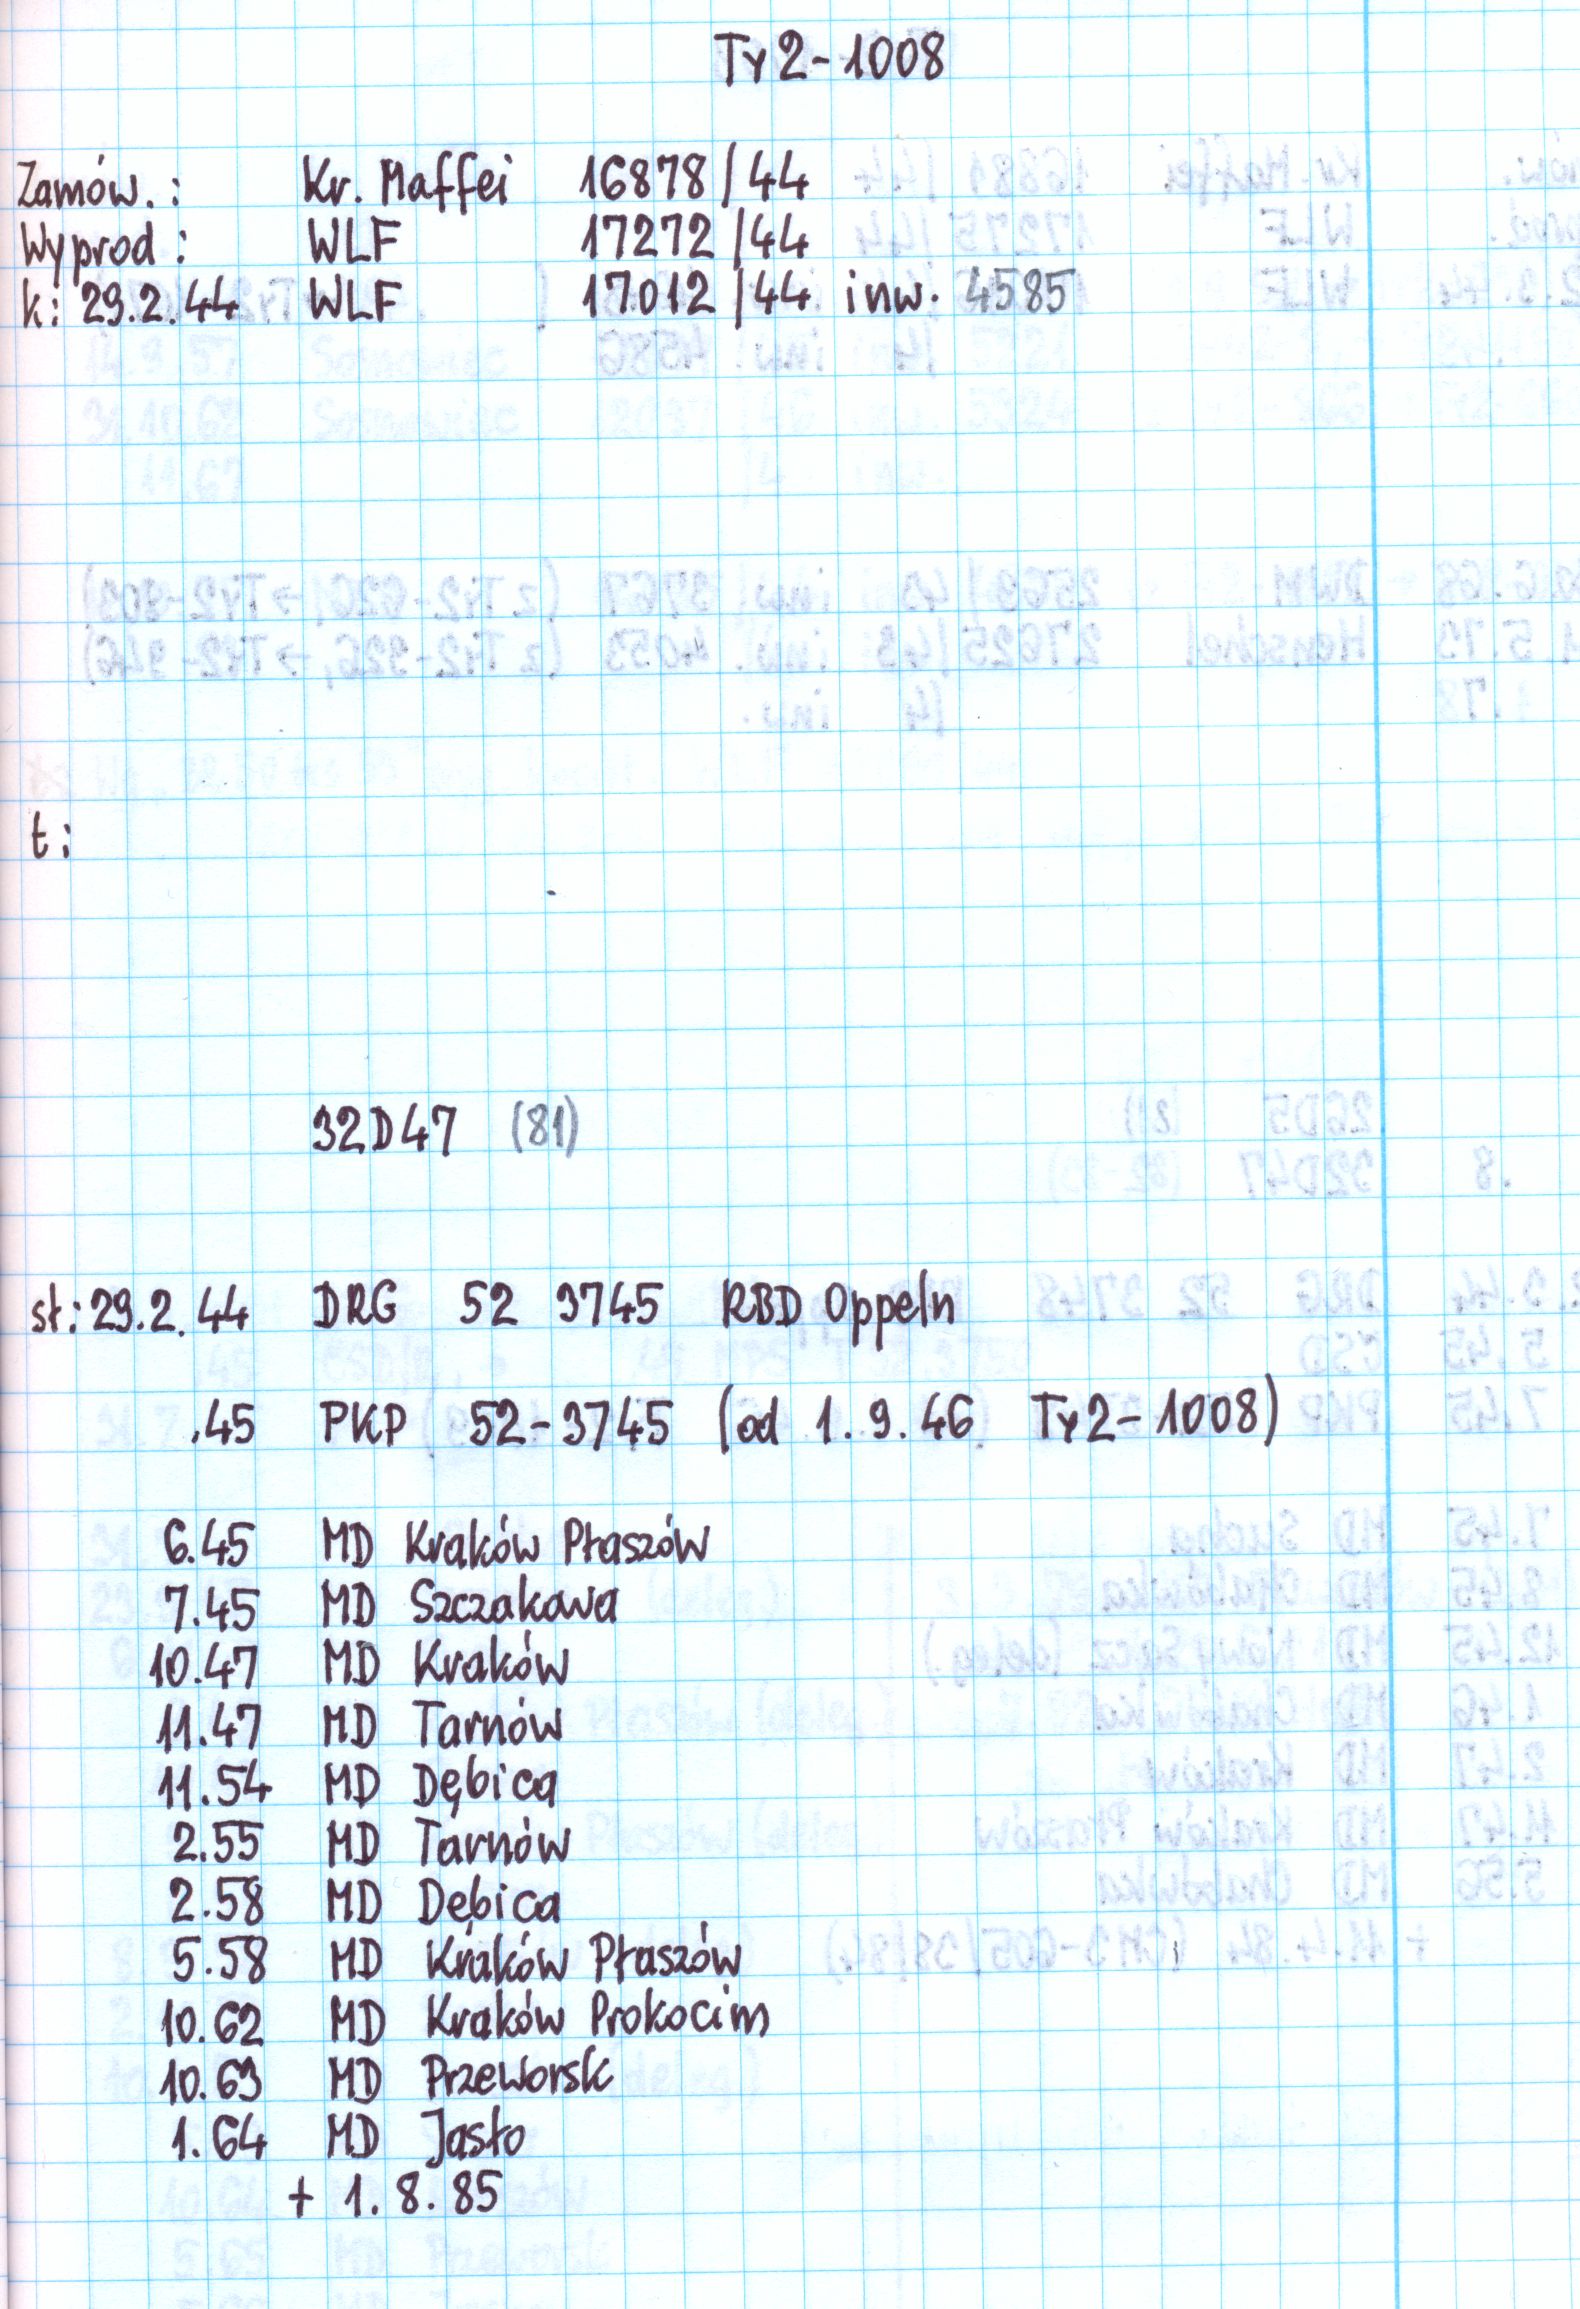 Ty2-1008
Zamów.: Kr. Maffei 16878/44
Wyprod: WLF 17272/44
k: 29.2.44 WLF 17012/44 inw. 4585
t:
32D47 (81)
st: 29.2.44 DRG 52 3745 RBD Oppeln
.45 PKP 52-3745 (od 1.9.46 Ty2-1008)
6.45 MD Kraków Płaszów
7.45 MD Szczakowa
10.47 MD Kraków
11.47 MD Tarnów
11.54 MD Dębica
2.55 MD Tarnów
2.58 MD Dębica
5.58 MD Kraków Płaszów
10.62 MD Kraków Prokocim
10.63 MD Przeworsk
1.64 MD Jasło
+ 1.8.85